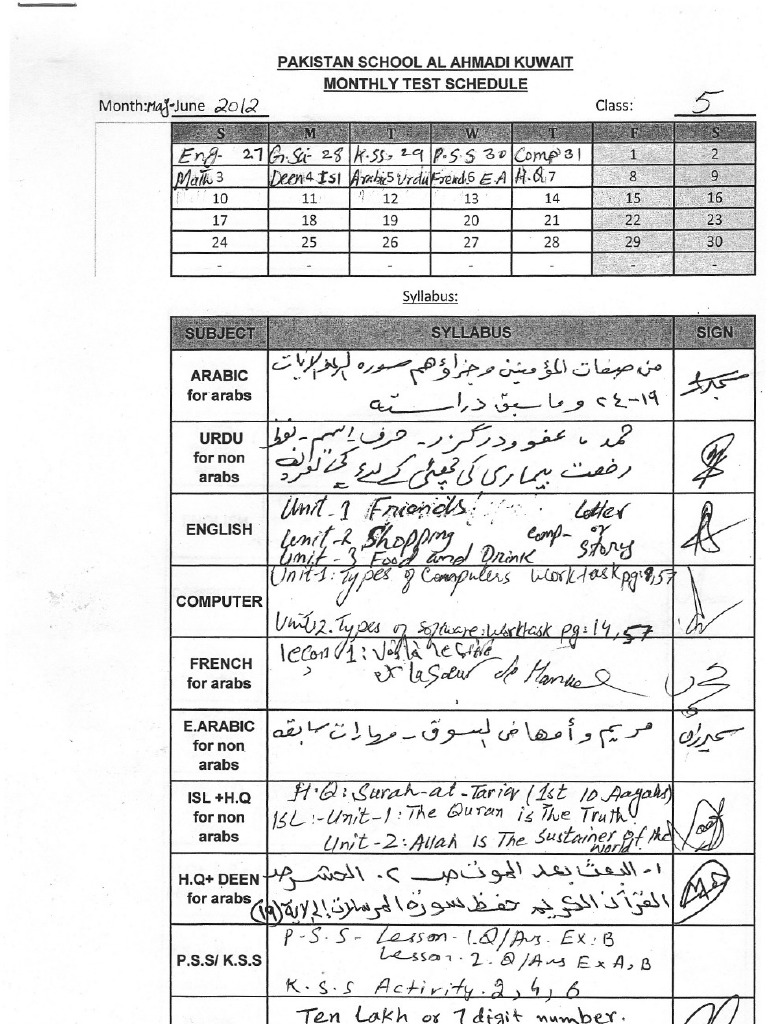 PAKISTAN SCHOOL AL AHMADI KUWAIT
MONTHLY TEST SCHEDULE
Month: May-June 2012 Class: 5
S M T W T F S
Eng- 27 G.Sci- 28 K.SS- 29 P.S.S 30 Comp 31 1 2
Math 3 Deen 4 Isl Arabic 5 Urdu French 6 E.A H.Q 7 8 9
10 11 12 13 14 15 16
17 18 19 20 21 22 23
24 25 26 27 28 29 30
- - - - - - -
Syllabus:
SUBJECT SYLLABUS SIGN
ARABIC for arabs
من صفات المؤمنين وجزاؤهم سورة الرعد الآيات
١٩-٢٤ وما سبق دراسته
URDU for non arabs
حمد، عفو و درگزر- حرف اسم-
رخصت بیماری کی چھٹی کے لئے
ENGLISH
Unit-1 Friends Letter
Unit-2 Shopping Comp- or
Unit-3 Food and Drink Story
COMPUTER
Unit-1: Types of Computers worktask pg: 8,57
Unit 2. Types of software: worktask pg: 14, 57
FRENCH for arabs
lecon 1: Voilà
et la Sœur de Manuel
E.ARABIC for non arabs
مريم و أمها في السوق - مهارات سابقه
ISL +H.Q for non arabs
H.Q: Surah-at-Tariq (1st 10 Aayahs)
ISL:-Unit-1: The Quran is The Truth.
Unit-2: Allah is The Sustainer of the world.
H.Q+ DEEN for arabs
١- البعث بعد الموت ص ٢. الحشر ص
القرآن الكريم حفظ سورة المرسلات إلى الآية (١٩)
P.S.S/ K.S.S
P-S.S- Lesson-1.Q/Ans. Ex:B
Lesson-2.Q/Ans Ex A,B
K.S.S Activity-2,4,6
Ten Lakh or 7 digit number.